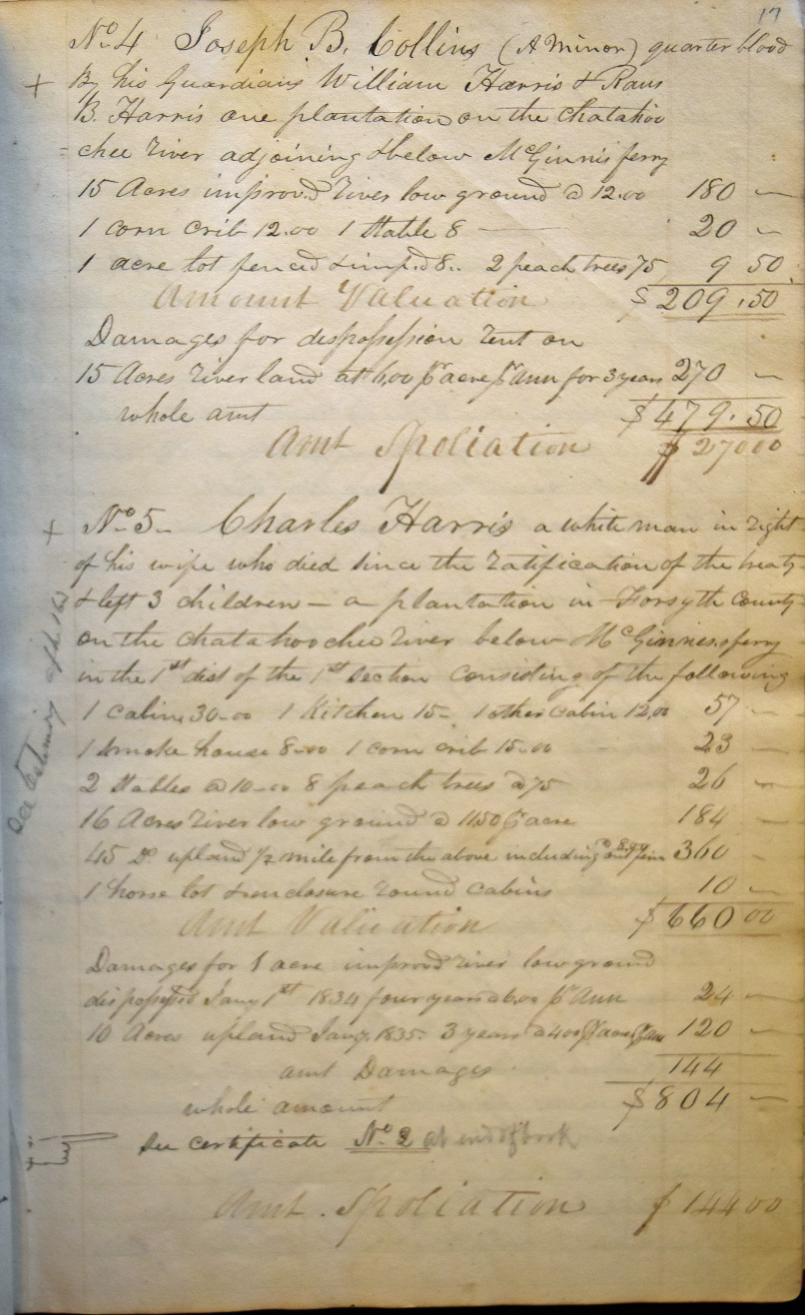 17
No. 4 Joseph B. Collins (A minor) quarter blood
+ By his Guardians William Harris &
B. Harris one plantation on the Chatahoo
=chee River adjoining & below McGinnis ferry
15 Acres improv.d River low ground @ 12.00 180 —
1 corn crib 12.00 1 Stable 8 — 20 —
1 acre lot fenced & imp.d 8.. 2 peach trees 75 9 50
Amount Valuation $ 209.50
Damages for dispossession rent on
15 Acres River land at 6,00 pr acre pr Ann for 3 years 270 —
whole amt $ 479.50
Amt Spoliation $ 270 00
+ No. 5 – Charles Harris a white man in right
of his wife who died since the ratification of the treaty
& left 3 children – a plantation in Forsyth County
on the Chatahoochee River below McGinness ferry
in the 1st dist of the 1st Section Consisting of the following
1 Cabin 30–00 1 Kitchen 15– 1 other Cabin 12,00 57 —
1 Smoke house 8–00 1 corn crib 15–00 23 —
2 Stables @ 10–00 8 peach trees @ 75 26 —
16 Acres River low ground @ 11.50 pr acre 184 —
45 Do upland 1/2 mile from the above including 360 –
1 horse lot & enclosure round cabins 10 —
Amt Valuation $ 660 00
Damages for 1 acre improvd river low ground
dispossesd Jany 1st 1834 four years @ 6.00 pr Ann 24 —
10 Acres upland Jany 1835. 3 years @ 4.00 pr acre pr Ann 120 —
amt Damages 144
whole amount $ 804 —
See certificate No. 2 at end of book
Amt. Spoliation $ 144 00
See testimony